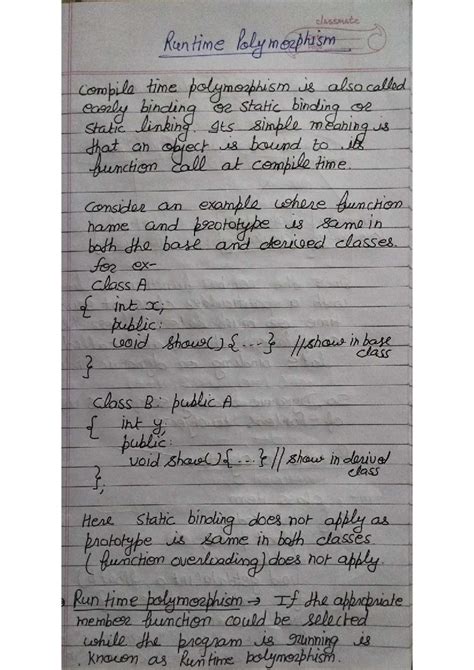 classmate
Runtime Polymorphism
Compile time polymorphism is also called
early binding or static binding or
static linking. Its simple meaning is
that an object is bound to its
function call at compile time.
Consider an example where function
name and prototype is same in
both the base and derived classes.
for ex-
class A
{ int x;
public:
void show() {...} //show in base
class
}
Class B: public A
{ int y;
public:
void show() {...} // show in derived
class
};
Here static binding does not apply as
prototype is same in both classes
(function overloading) does not apply.
Run time polymorphism → If the appropriate
member function could be selected
while the program is running is
known as Runtime polymorphism.